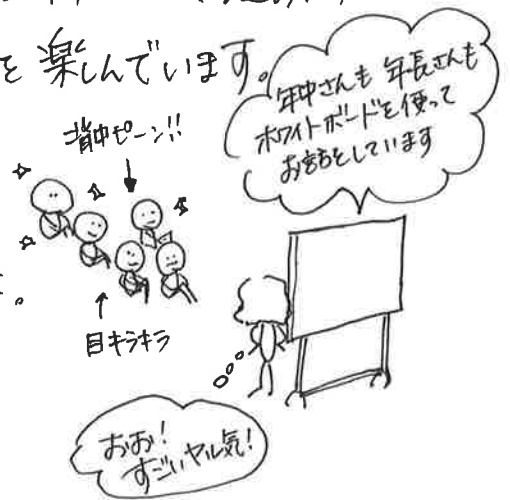 を楽しんでいます。
背中ピーン!!
年中さんも 年長さんも
ホワイトボードを使って
お話をしています
目キラキラ
おお!
すごいヤル気!